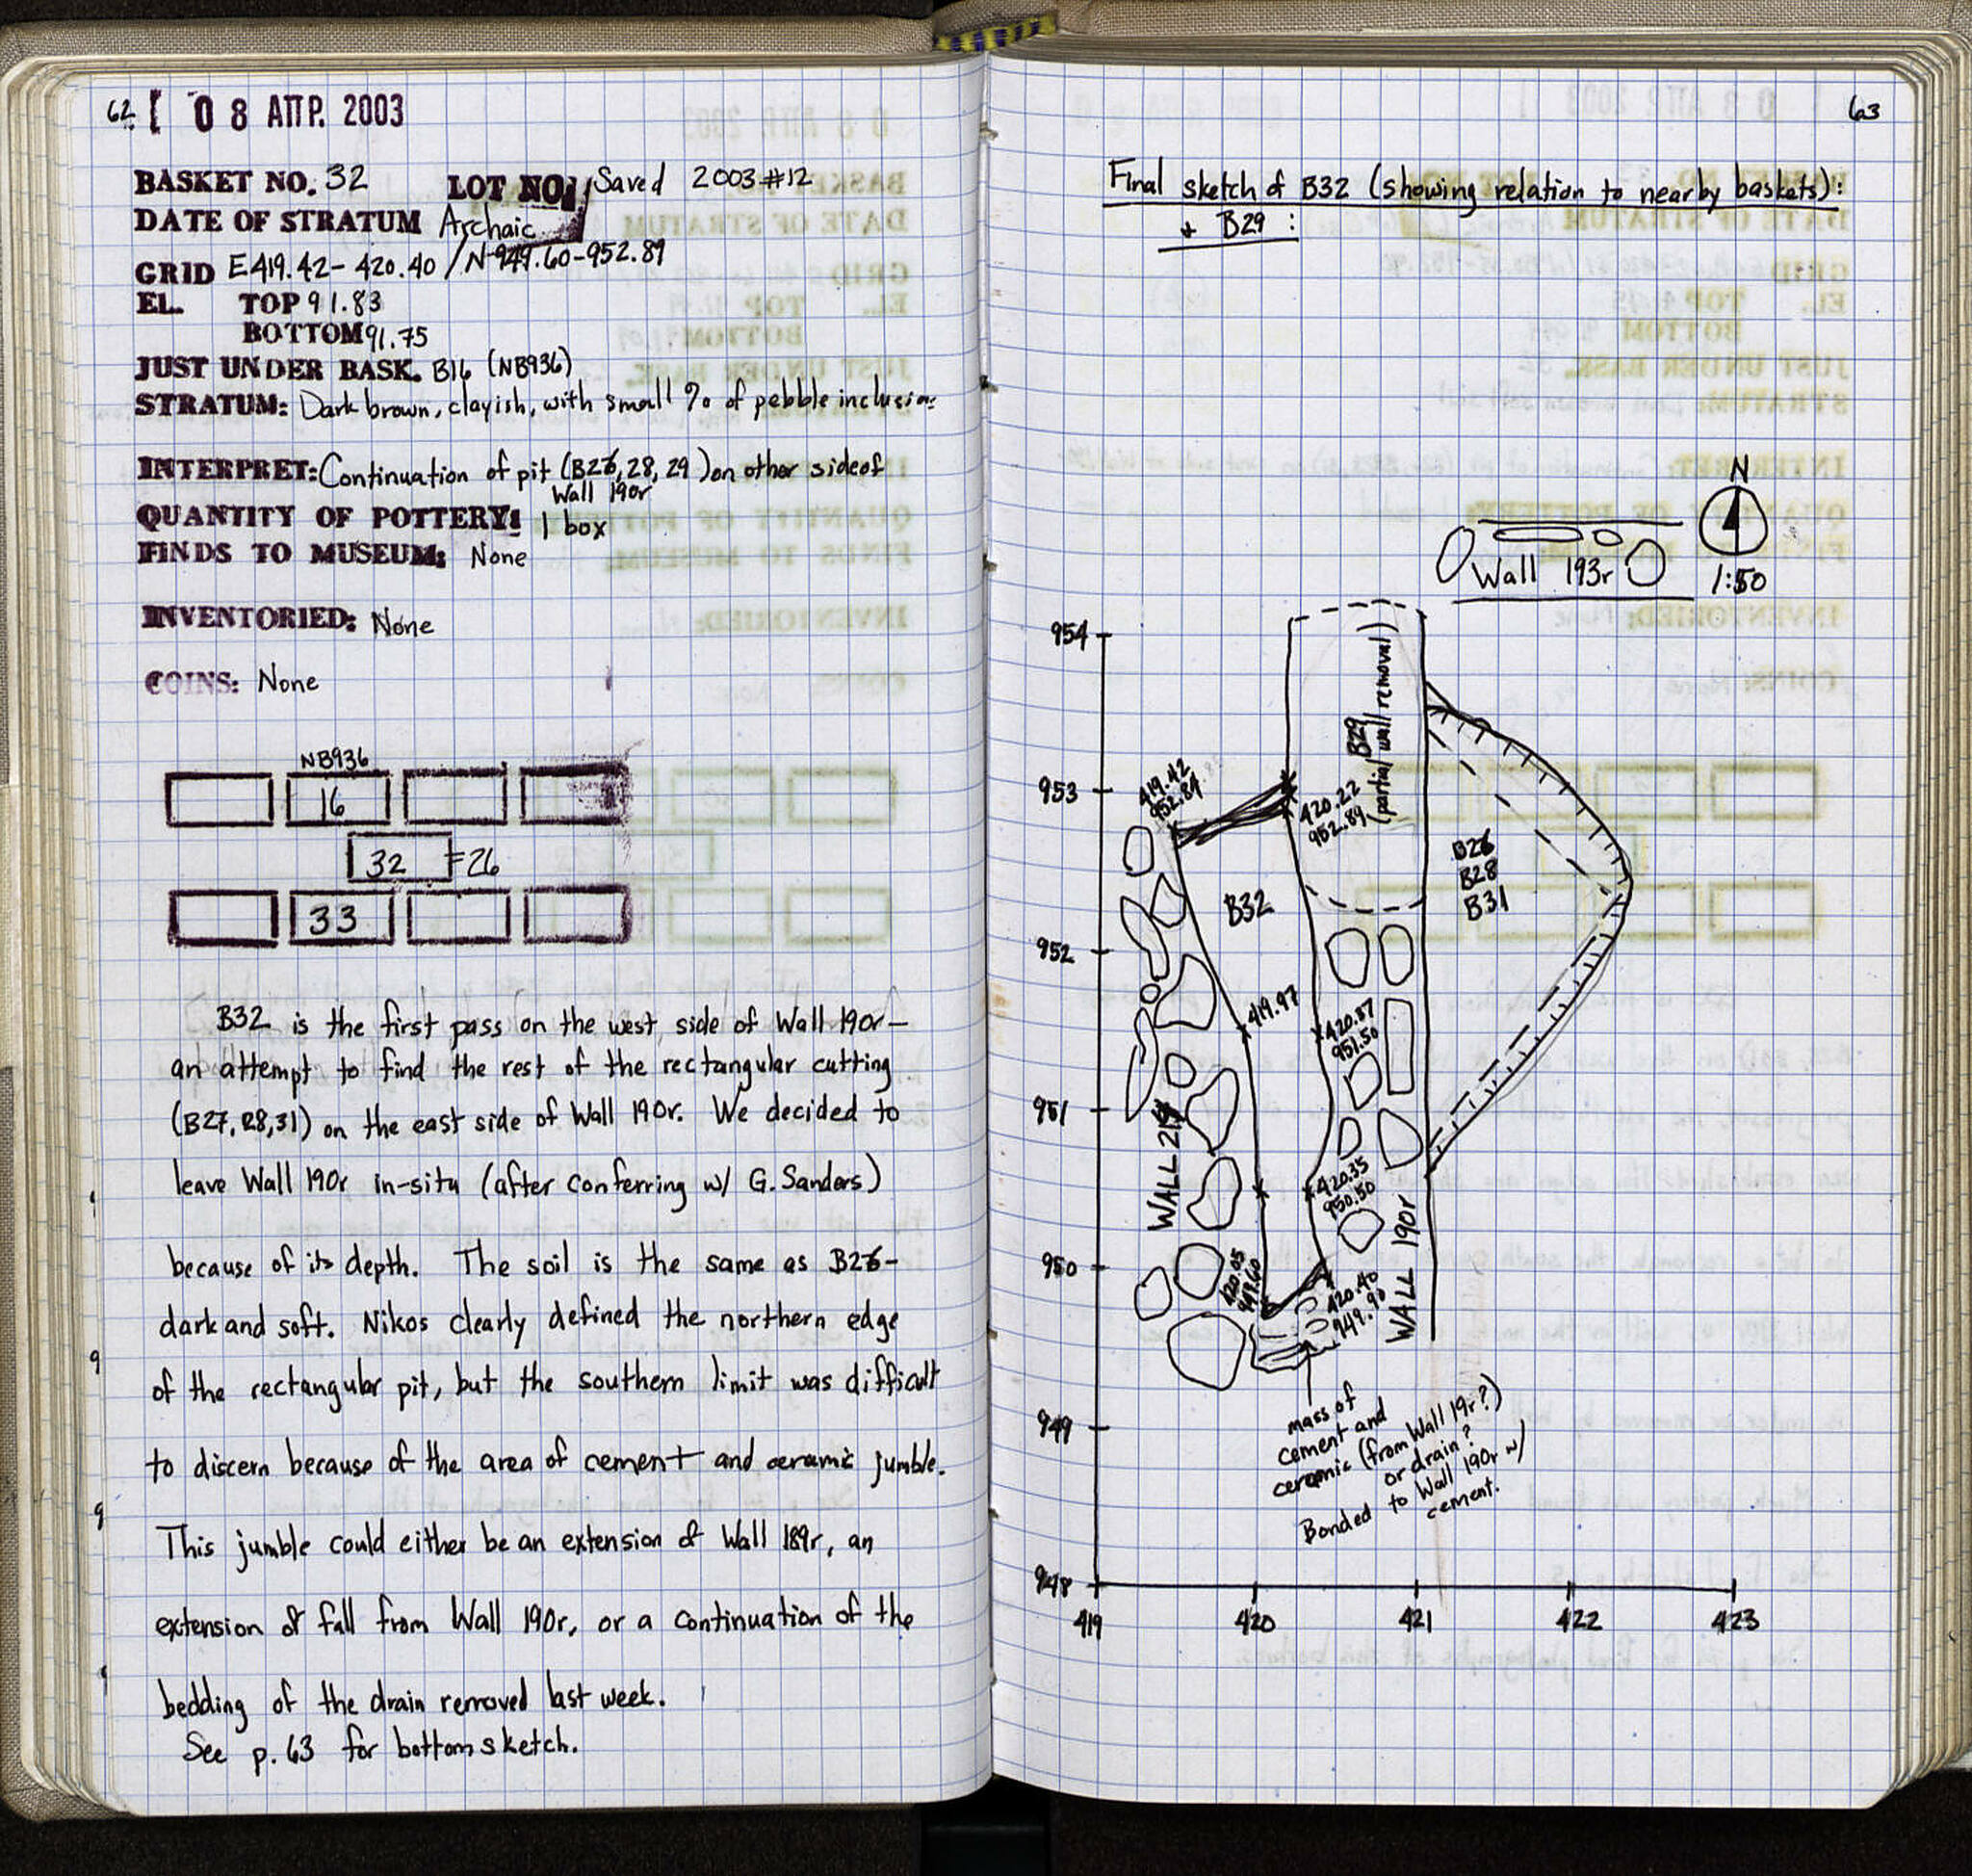 62
08 ΑΠΡ. 2003
BASKET NO. 32 LOT NO. Saved 2003#12
DATE OF STRATUM Archaic
GRID E419.42-420.40 / N-949.60-952.89
EL. TOP 91.83
BOTTOM 91.75
JUST UNDER BASK. B16 (NB936)
STRATUM: Dark brown, clayish, with small % of pebble inclusions
INTERPRET: Continuation of pit (B26, 28, 29) on other side of
Wall 190r
QUANTITY OF POTTERY: 1 box
FINDS TO MUSEUM: None
INVENTORIED: None
COINS: None
NB936
16
32 =26
33
B32 is the first pass on the west side of Wall 190r-
an attempt to find the rest of the rectangular cutting
(B27, 28, 31) on the east side of Wall 190r. We decided to
leave Wall 190r in-situ (after conferring w/ G. Sanders)
because of its depth. The soil is the same as B26-
dark and soft. Nikos clearly defined the northern edge
of the rectangular pit, but the southern limit was difficult
to discern because of the area of cement and ceramic jumble.
This jumble could either be an extension of Wall 189r, an
extension of fall from Wall 190r, or a continuation of the
bedding of the drain removed last week.
See p. 63 for bottom sketch.
63
Final sketch of B32 (showing relation to nearby baskets):
+ B29 :
N
Wall 193r
1:50
954
B29
(partial wall removal)
953
419.42
952.84
420.22
952.89
B26
B28
B31
B32
952
419.97
420.87
951.50
951
WALL 219
420.35
950.50
950
420.05
949.60
420.40
949.90
WALL 190r
949
mass of
cement and
ceramic (from Wall 19r?)
or drain?
Bonded to Wall 190r w/
cement.
948
419 420 421 422 423